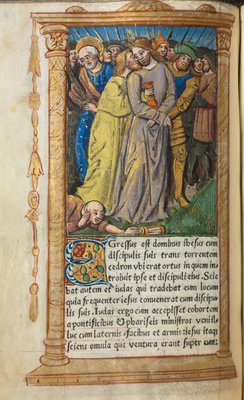 Gressus est dominus ihesus cum
discipulis suis trans torrentem
cedron vbi erat ortus in quem in
troiuit ipse et discipuli eius. Scie
bat autem et iudas qui tradebat eum locum
quia frequenter iesus conuenerat cum discipu
lis suis. Iudas ergo cum accepisset cohortem
a pontificibus & phariseis ministros venit il
luc cum laternis facibus et armis: iesus itaqz
sciens omnia que ventura erant super eum: